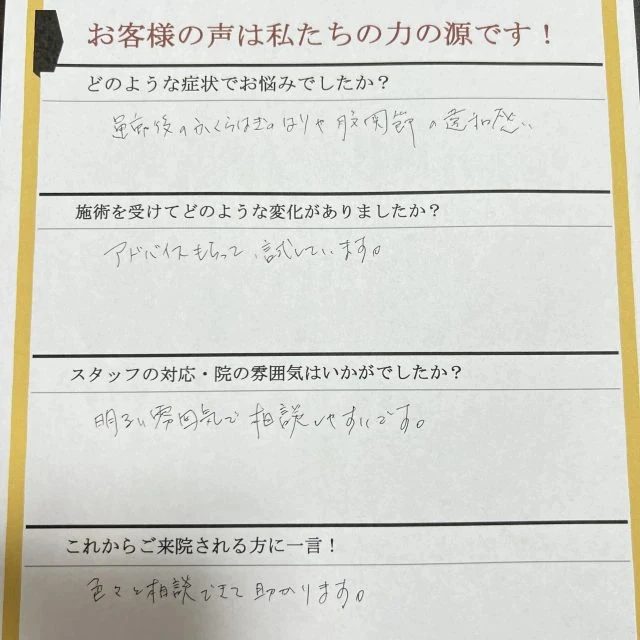 お客様の声は私たちの力の源です！
どのような症状でお悩みでしたか？
運動後のふくらはぎのはりや股関節の違和感
施術を受けてどのような変化がありましたか？
アドバイスもらって、試しています。
スタッフの対応・院の雰囲気はいかがでしたか？
明るい雰囲気で相談しやすいです。
これからご来院される方に一言！
色々と相談できて助かります。